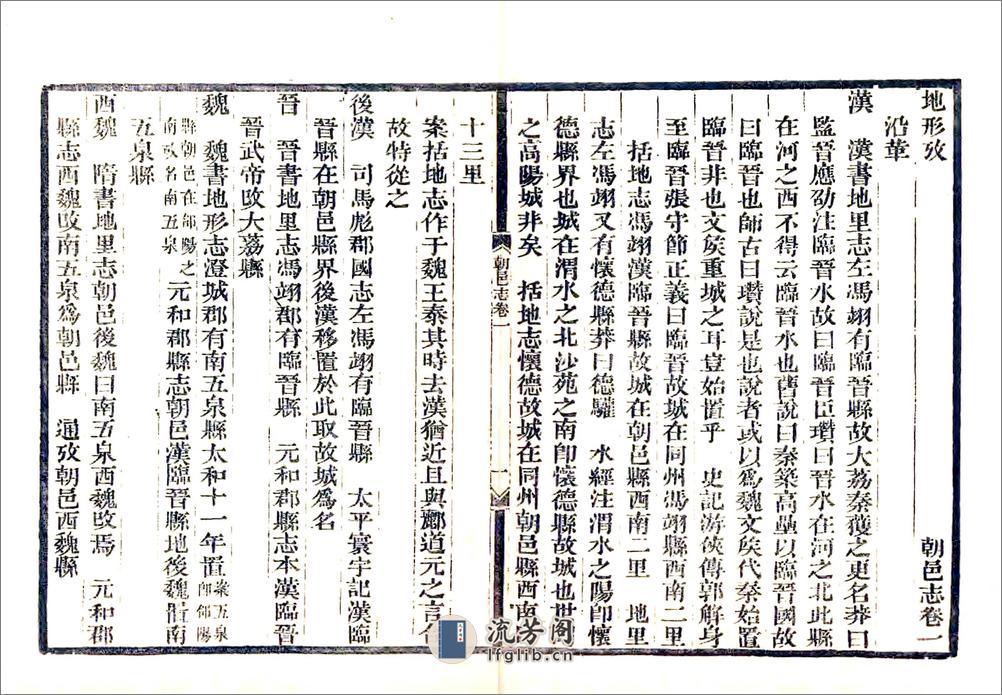 地形攷 朝邑志卷一
沿革
漢 漢書地里志左馮翊有臨晉縣故大荔秦獲之更名莽曰
監晉應劭注臨晉水故曰臨晉臣瓚曰晉水在河之北此縣
在河之西不得云臨晉水也舊說曰秦築高壘以臨晉國故
曰臨晉也師古曰瓚說是也說者或以為魏文矦代秦始置
臨晉非也文矦重城之耳豈始置乎 史記游俠傳郭解身
至臨晉張守節正義曰臨晉故城在同州馮翊縣西南二里
括地志馮翊漢臨晉縣故城在朝邑縣西南二里 地里
志左馮翊又有懷德縣莽曰德驩 水經注渭水之陽卽懷
德縣界也城在渭水之北沙苑之南卽懷德縣故城也世
之高陽城非矣 括地志懷德故城在同州朝邑縣西南
朝邑志卷一
一
十三里
案括地志作于魏王泰其時去漢猶近且與酈道元之言合
故特從之
後漢 司馬彪郡國志左馮翊有臨晉縣 太平寰宇記漢臨
晉縣在朝邑縣界後漢移置於此取故城爲名
晉 晉書地里志馮翊郡有臨晉縣 元和郡縣志本漢臨晉
晉武帝攺大荔縣
魏 魏書地形志澄城郡有南五泉縣太和十一年置案五泉卽郃陽
縣朝邑在郃陽之南攷名南五泉 元和郡縣志朝邑漢臨晉縣地後魏置南
五泉縣
西魏 隋書地里志朝邑後魏曰南五泉西魏攺焉 元和郡
縣志西魏攺南五泉爲朝邑縣 通攷朝邑西魏縣
流芳阁
lfglib.cn